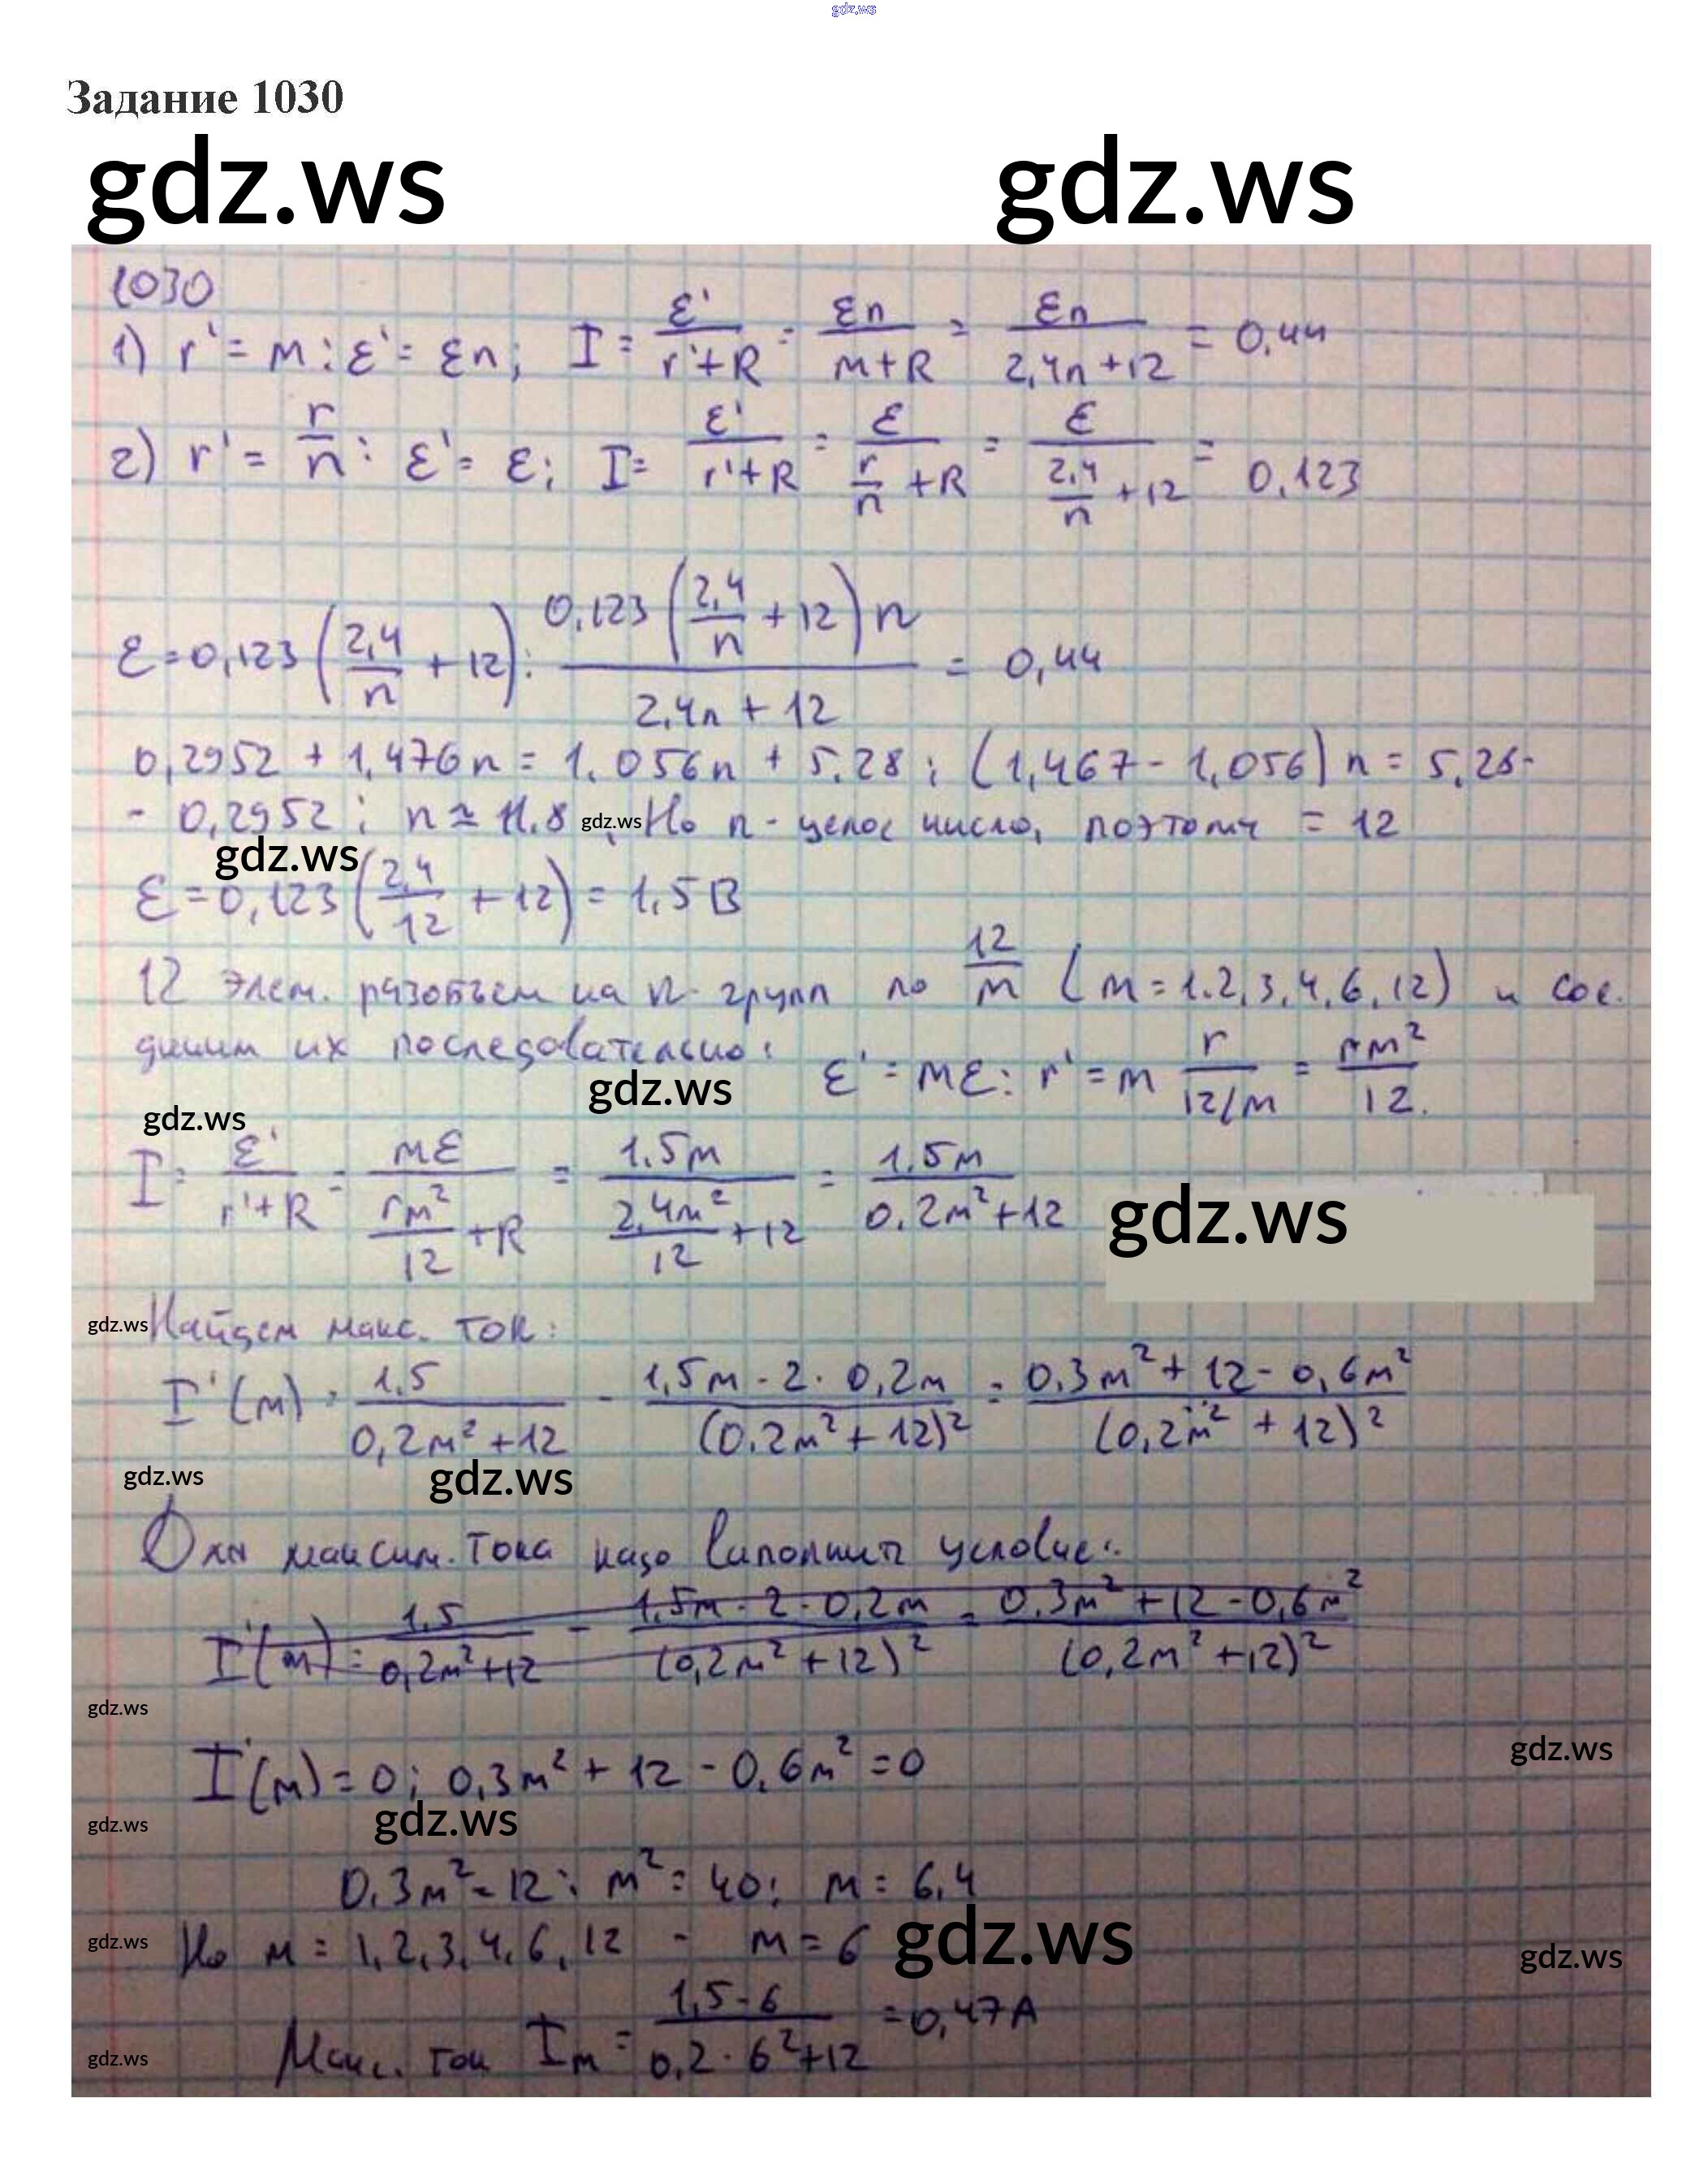 gdz.ws
Задание 1030
gdz.ws gdz.ws
1030
1) r' = m; ε' = εn; I = ε'/(r'+R) = εn/(m+R) = εn/(2,4n+12) = 0,44
2) r' = r/n; ε' = ε; I = ε'/(r'+R) = ε/(r/n+R) = ε/(2,4/n+12) = 0,123
ε = 0,123(2,4/n + 12); 0,123(2,4/n + 12)n/(2,4n + 12) = 0,44
0,2952 + 1,476n = 1.056n + 5.28; (1,467 - 1,056)n = 5,28-
- 0,2952; n ≃ 11.8 gdz.ws Но n - целое число, поэтому = 12
gdz.ws
ε = 0,123(2,4/12 + 12) = 1,5 В
12 элем. разобъем на n групп по 12/m (m = 1.2,3,4,6,12) и сое.
диним их последовательно: ε' = mε; r' = m r/(12/m) = rm²/12.
gdz.ws
gdz.ws
I = ε'/(r'+R) = mε/(rm²/12+R) = 1.5m/(2,4m²/12+12) = 1.5m/(0.2m²+12)
gdz.ws
gdz.ws Найдем макс. ток:
I'(m) = 1,5/(0,2m²+12) - 1,5m·2·0,2m/(0.2m²+12)² = 0.3m²+12-0,6m²/(0,2m²+12)²
gdz.ws gdz.ws
Для максим. тока надо выполнить условие:
I'(m) = 1,5/(0,2m²+12) - 1,5m·2·0,2m/(0,2m²+12)² = 0.3m²+12-0,6m²/(0,2m²+12)²
gdz.ws
gdz.ws
I'(m) = 0; 0,3m² + 12 - 0,6m² = 0
gdz.ws gdz.ws
0.3m² = 12; m² = 40; m = 6,4
gdz.ws Но m = 1,2,3,4,6,12 - m = 6 gdz.ws
gdz.ws
Макс. ток Im = 1,5·6/(0,2·6²+12) = 0,47А
gdz.ws